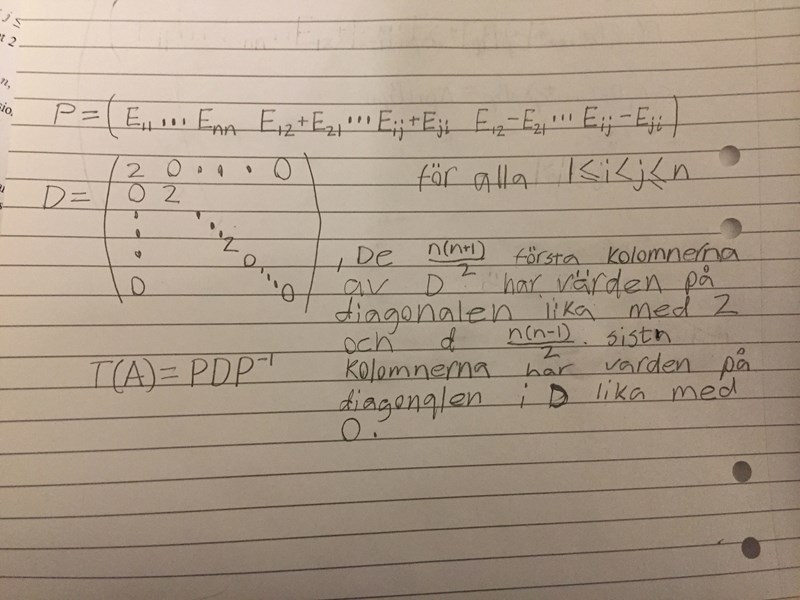 j ≤
n 2
n,
sio.
P = ( E₁₁ ... Eₙₙ E₁₂+E₂₁ ... Eᵢⱼ+Eⱼᵢ E₁₂−E₂₁ ... Eᵢⱼ−Eⱼᵢ )
för alla 1≤i<j≤n
D = ( 2 0 . . . 0
0 2
. . .
. 2
. 0 . . .
0 0 )
, De n(n+1)/2 första kolomnerna
av D har värden på
diagonalen lika med 2
och d n(n-1)/2 . sistn
kolomnerna har varden på
diagonqlen i D lika med
0.
T(A) = PDP⁻¹